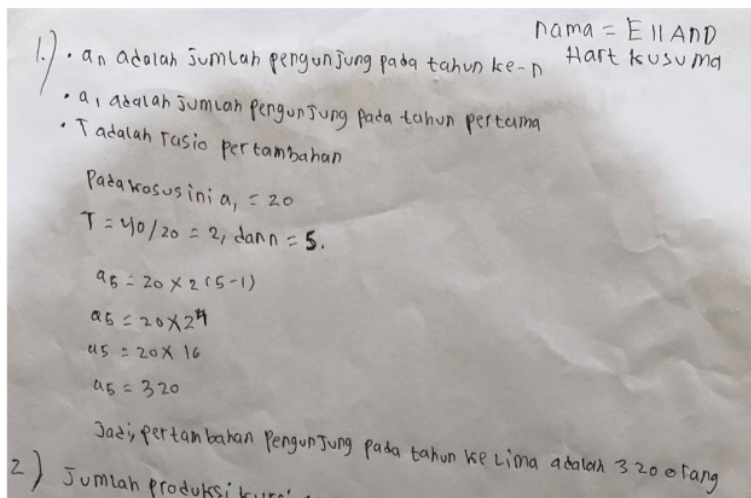 nama = EllAND
Hart kusuma
1.) • an adalah jumlah pengunjung pada tahun ke-n
• a1 adalah jumlah pengunjung pada tahun pertama
• T adalah rasio pertambahan
Pada kasus ini a1 = 20
T = 40/20 = 2, dan n = 5.
a5 = 20 x 2 (5-1)
a5 = 20 x 2⁴
a5 = 20 x 16
a5 = 320
Jadi, pertambahan Pengunjung pada tahun ke lima adalah 320 orang
2) Jumlah produksi